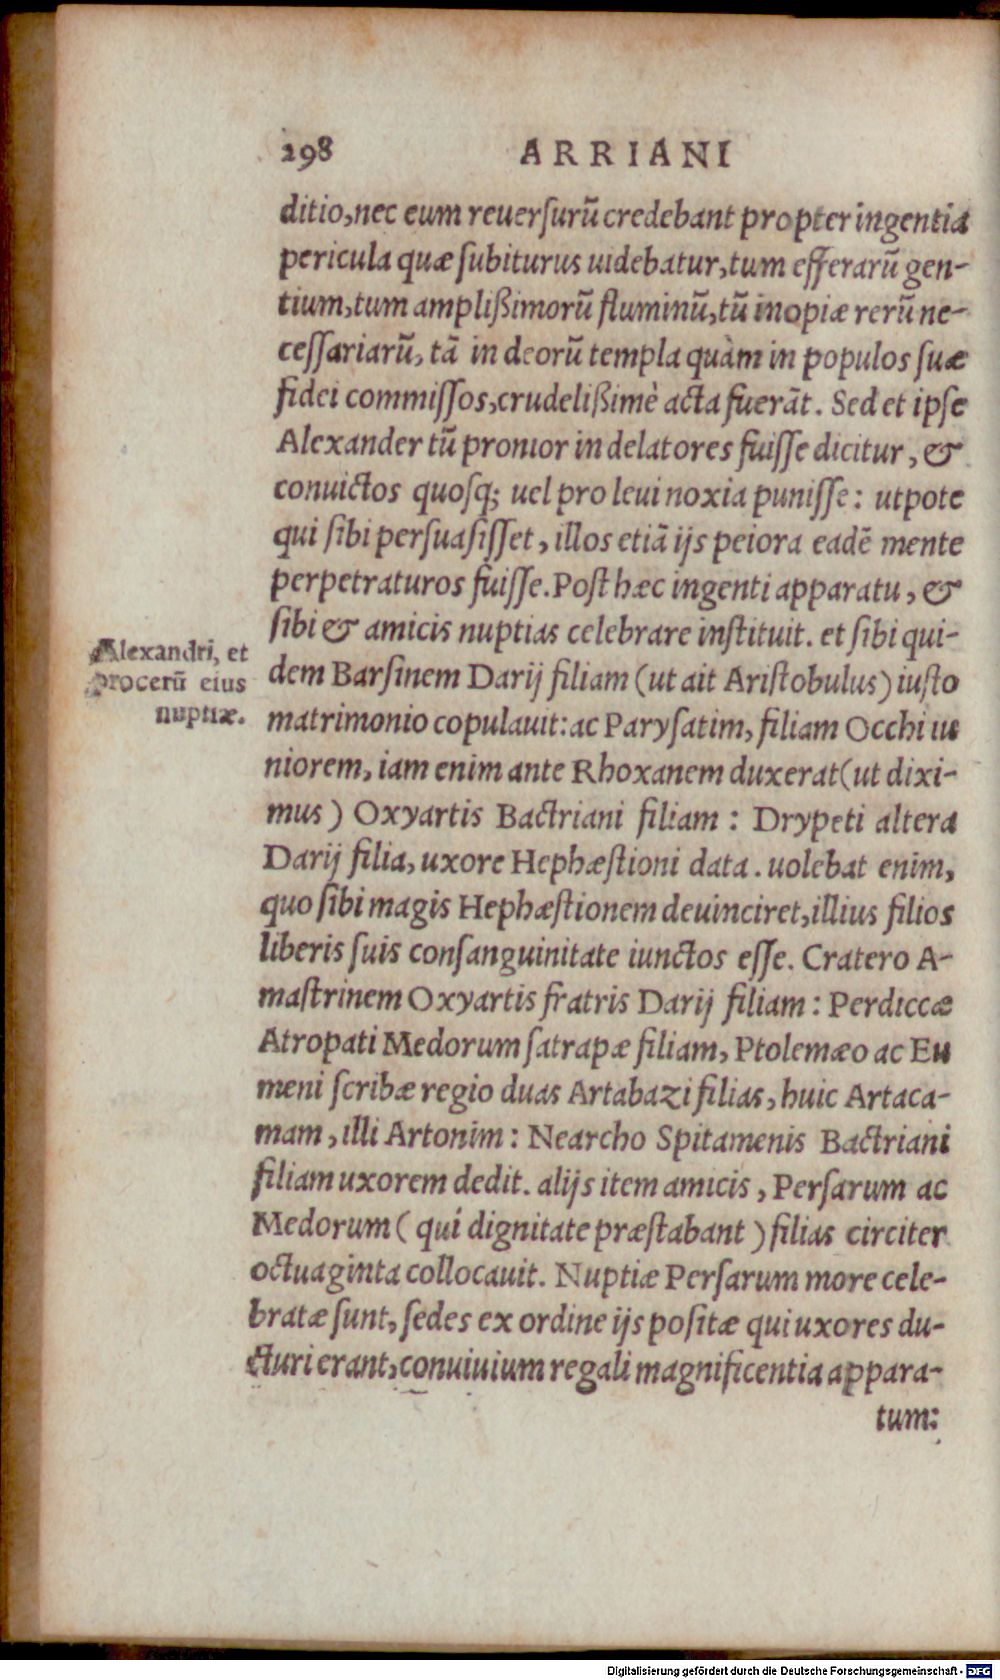 298 ARRIANI
ditio, nec eum reuerſurū credebant propter ingentia
pericula quæ ſubiturus uidebatur, tum efferarū gen-
tium, tum ampliſsimorū fluminū, tū inopiæ rerū ne-
ceſſariarū, tā in deorū templa quàm in populos ſuæ
fidei commiſſos, crudeliſsimè acta fuerāt. Sed et ipſe
Alexander tū pronior in delatores fuiſſe dicitur, &
conuictos quoſq; uel pro leui noxia puniſſe: utpote
qui ſibi perſuaſiſſet, illos etiā ijs peiora eadē mente
perpetraturos fuiſſe. Poſt hæc ingenti apparatu, &
ſibi & amicis nuptias celebrare inſtituit. et ſibi qui-
Alexandri, et
procerū eius
nuptiæ.
dem Barſinem Darij filiam (ut ait Ariſtobulus) iuſto
matrimonio copulauit: ac Paryſatim, filiam Occhi iu
niorem, iam enim ante Rhoxanem duxerat (ut dixi-
mus) Oxyartis Bactriani filiam: Drypeti altera
Darij filia, uxore Hephæſtioni data. uolebat enim,
quo ſibi magis Hephæſtionem deuinciret, illius filios
liberis ſuis conſanguinitate iunctos eſſe. Cratero A-
maſtrinem Oxyartis fratris Darij filiam: Perdiccæ
Atropati Medorum ſatrapæ filiam, Ptolemæo ac Eu
meni ſcribæ regio duas Artabazi filias, huic Artaca-
mam, illi Artonim: Nearcho Spitamenis Bactriani
filiam uxorem dedit. alijs item amicis, Perſarum ac
Medorum (qui dignitate præſtabant) filias circiter
octuaginta collocauit. Nuptiæ Perſarum more cele-
bratæ ſunt, ſedes ex ordine ijs poſitæ qui uxores du-
cturi erant, conuiuium regali magnificentia appara-
tum:
Digitalisierung gefördert durch die Deutsche Forschungsgemeinschaft - DFG